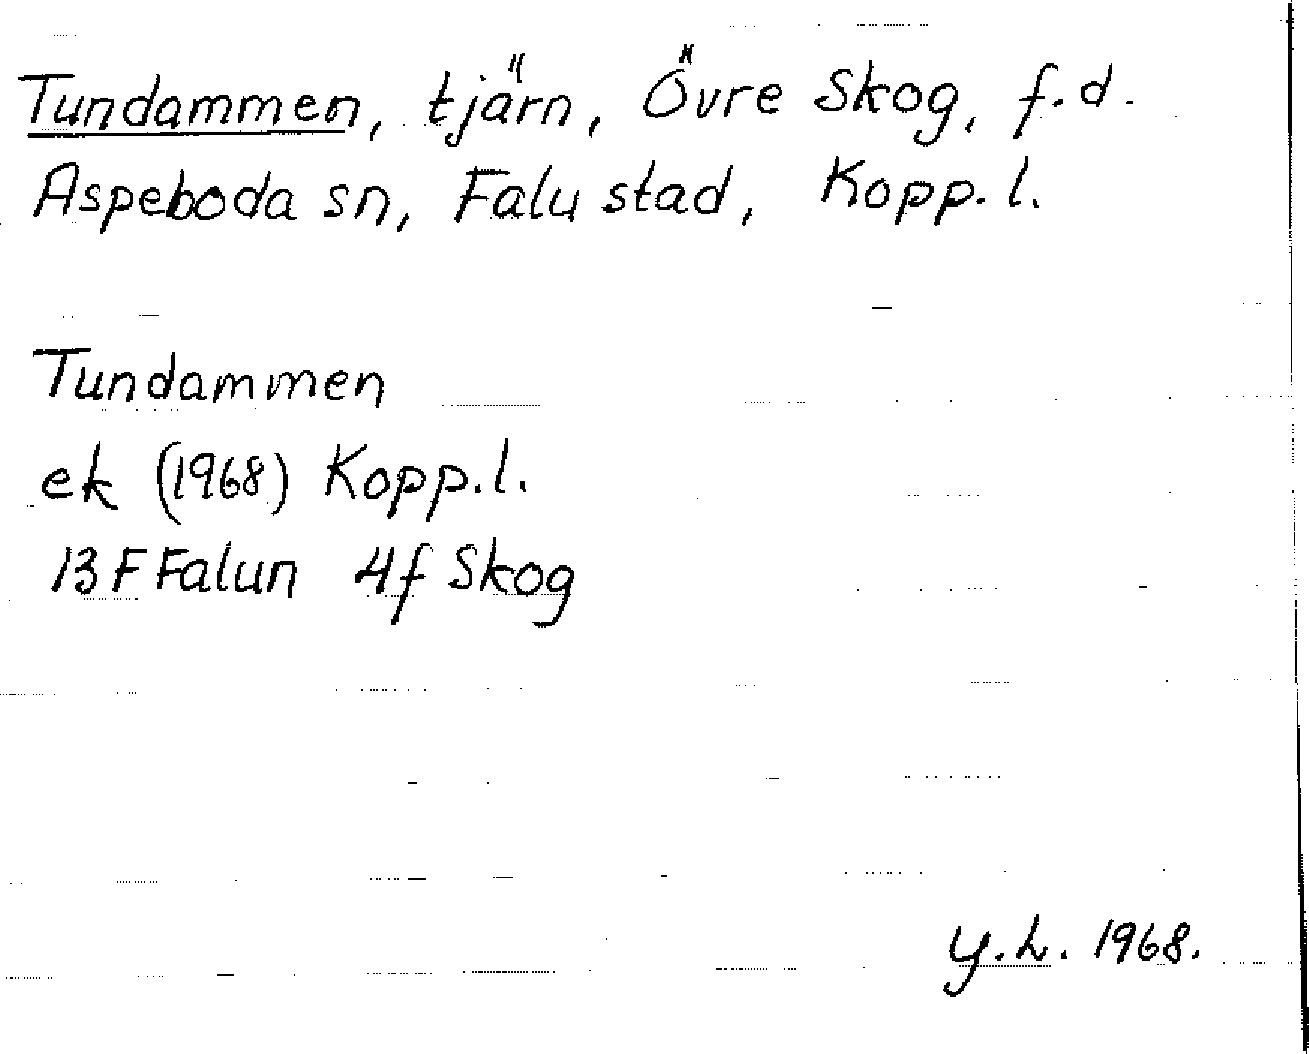 Tundammen, tjärn, Övre Skog, f.d.
Aspeboda sn, Falu stad, Kopp. l.
Tundammen
ek (1968) Kopp.l.
13F Falun 4f Skog
y.L. 1968.